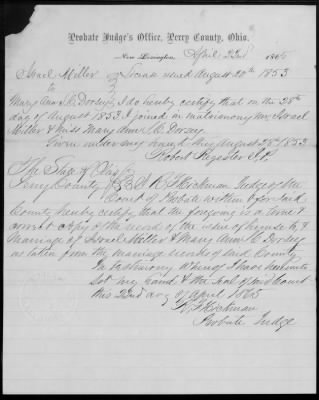 Probate Judge's Office, Perry County, Ohio.
New Lexington, April 22d 1865
Israel Miller } License issued August 20th 1853
to
Mary Ann C Dorsey } I do hereby certify that on the 28th
day of August 1853 I joined in matrimony Mr Israel
Miller & Miss Mary Ann C. Dorsey.
Given under my hand this August 28th 1853
Robert J.P.
The State of Ohio
Perry County } SS I Hickman Judge of the
Court of Probate within & for said
County hereby certify that the foregoing is a true &
correct copy of the record of the issue of license to &
marriage of Israel Miller & Mary Ann C Dorsey
as taken from the marriage records of said County
In testimony whereof I have hereunto
Set my hand & the Seal of said Court
this 22nd day of April 1865
Hickman
Probate Judge